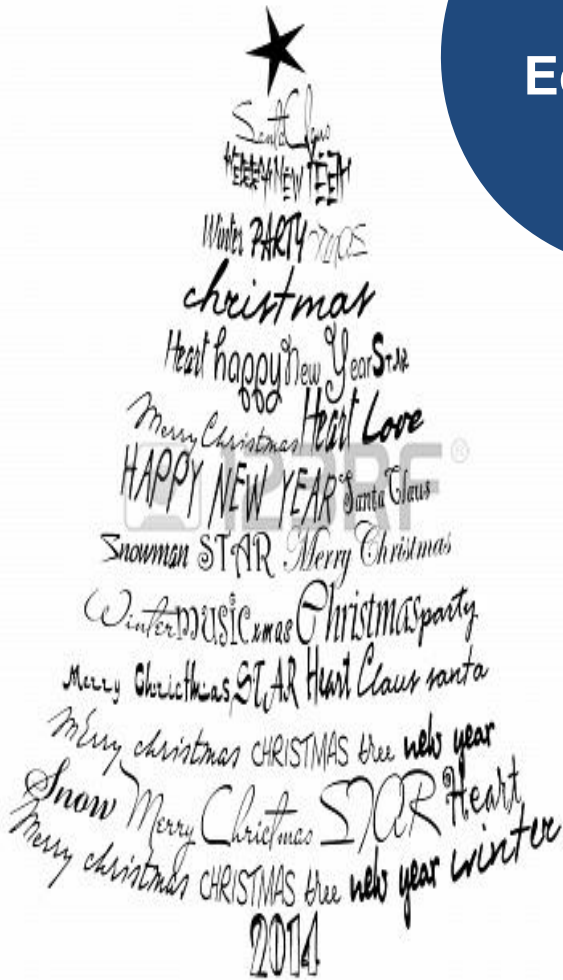 Santa Claus
NEW
Winter PARTY
christmas
Heart happy New Year STAR
Merry Christmas Heart Love
HAPPY NEW YEAR Santa Claus
123RF®
Snowman STAR Merry Christmas
Winter music xmas Christmas party
Merry Chricthias STAR Heart Claus santa
Merry christmas CHRISTMAS tree new year
Snow Merry Chrictmas STAR Heart
Merry christmas CHRISTMAS tree new year winter
2014